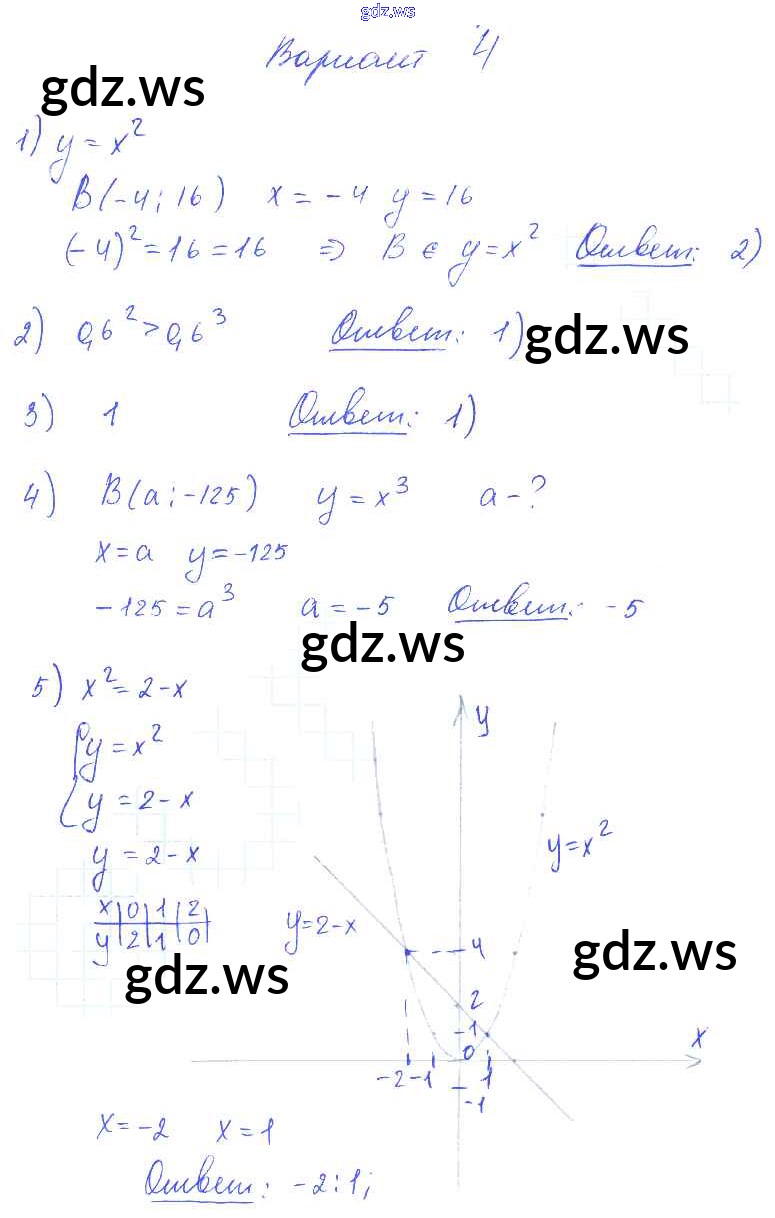 gdz.ws
Вариант 4
gdz.ws
1) y = x²
B(-4; 16) x = -4 y = 16
(-4)² = 16 = 16 ⇒ B ∈ y = x² Ответ: 2)
2) 0,6² > 0,6³ Ответ: 1)
gdz.ws
3) 1 Ответ: 1)
4) B(a; -125) y = x³ a - ?
x = a y = -125
-125 = a³ a = -5 Ответ: -5
gdz.ws
5) x² = 2 - x
{ y = x²
{ y = 2 - x
y = 2 - x
x | 0 | 1 | 2
y | 2 | 1 | 0
gdz.ws
y
y = x²
y = 2 - x
4
gdz.ws
2
-1
0
x
-2 -1 1
-1
x = -2 x = 1
Ответ: -2; 1;